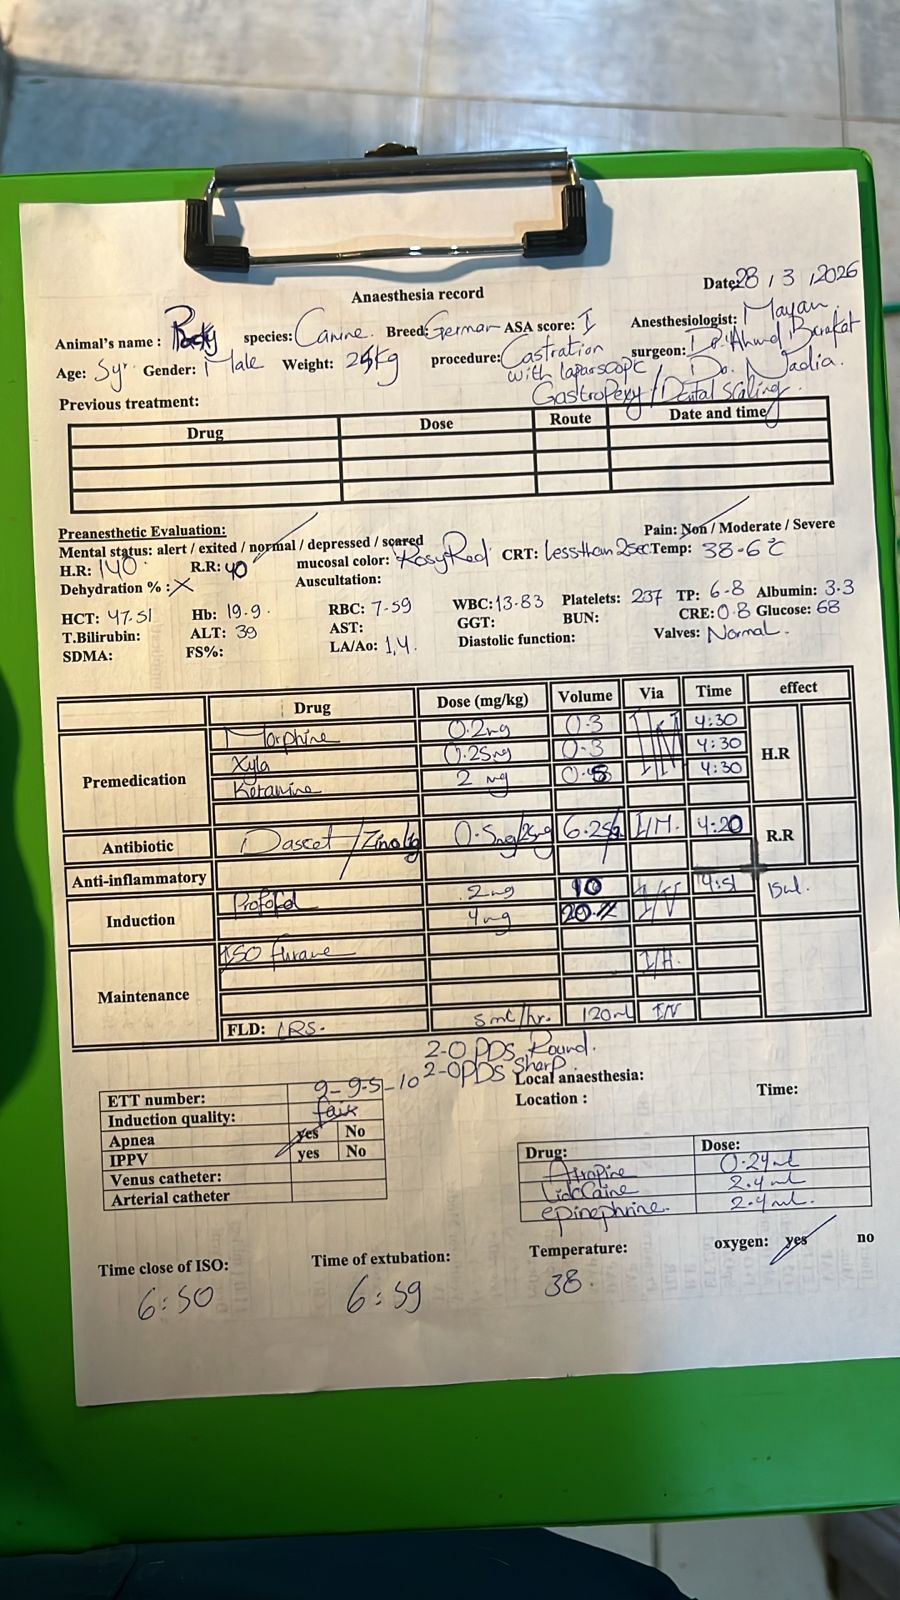 Anaesthesia record
Date: 28 / 3 / 2026
Animal's name : Rocky species: Canine. Breed: German ASA score: I Anesthesiologist: Mayan.
Age: 5yr Gender: Male Weight: 25kg procedure: Castration surgeon: Dr. Ahmed Barakat
with laparscopic / Dr. Nadia.
Gastropexy / Dental scaling.
Previous treatment:
Drug Dose Route Date and time
Preanesthetic Evaluation: Pain: Non / Moderate / Severe
Mental status: alert / exited / normal / depressed / scared
H.R: 140 R.R: 40 mucosal color: Rosy Red CRT: less than 2sec Temp: 38.6°C
Dehydration % : X Auscultation:
HCT: 47.51 Hb: 19.9. RBC: 7.59 WBC: 13.83 Platelets: 237 TP: 6.8 Albumin: 3.3
T.Bilirubin: ALT: 39 AST: GGT: BUN: CRE: 0.8 Glucose: 68
SDMA: FS%: LA/Ao: 1,4. Diastolic function: Valves: Normal.
Drug Dose (mg/kg) Volume Via Time effect
Premedication Morphine 0.2mg 0.3 I/M 4:30 H.R
Xyla 0.25mg 0.3 4:30
Ketamine 2 mg 4:30
Antibiotic Dascet / 0.5mg/25mg I/M. 4:20 R.R
Anti-inflammatory
Induction Profofol 2mg 10 I/V 4:51 15ml.
4mg 20
Maintenance ISO flurane I/H.
FLD: LRS. 5ml/hr. 120ml I/V
2-0 PDS Round.
2-0 PDS Sharp.
ETT number: 9-9.5-10 Local anaesthesia:
Induction quality: fair Location : Time:
Apnea yes No
IPPV yes No Drug: Dose:
Venus catheter: Atropine 0.24ml
Arterial catheter LidoCaine 2.4ml
epinephrine. 2.4ml.
Time close of ISO: Time of extubation: Temperature: oxygen: yes no
6:50 6:59 38.